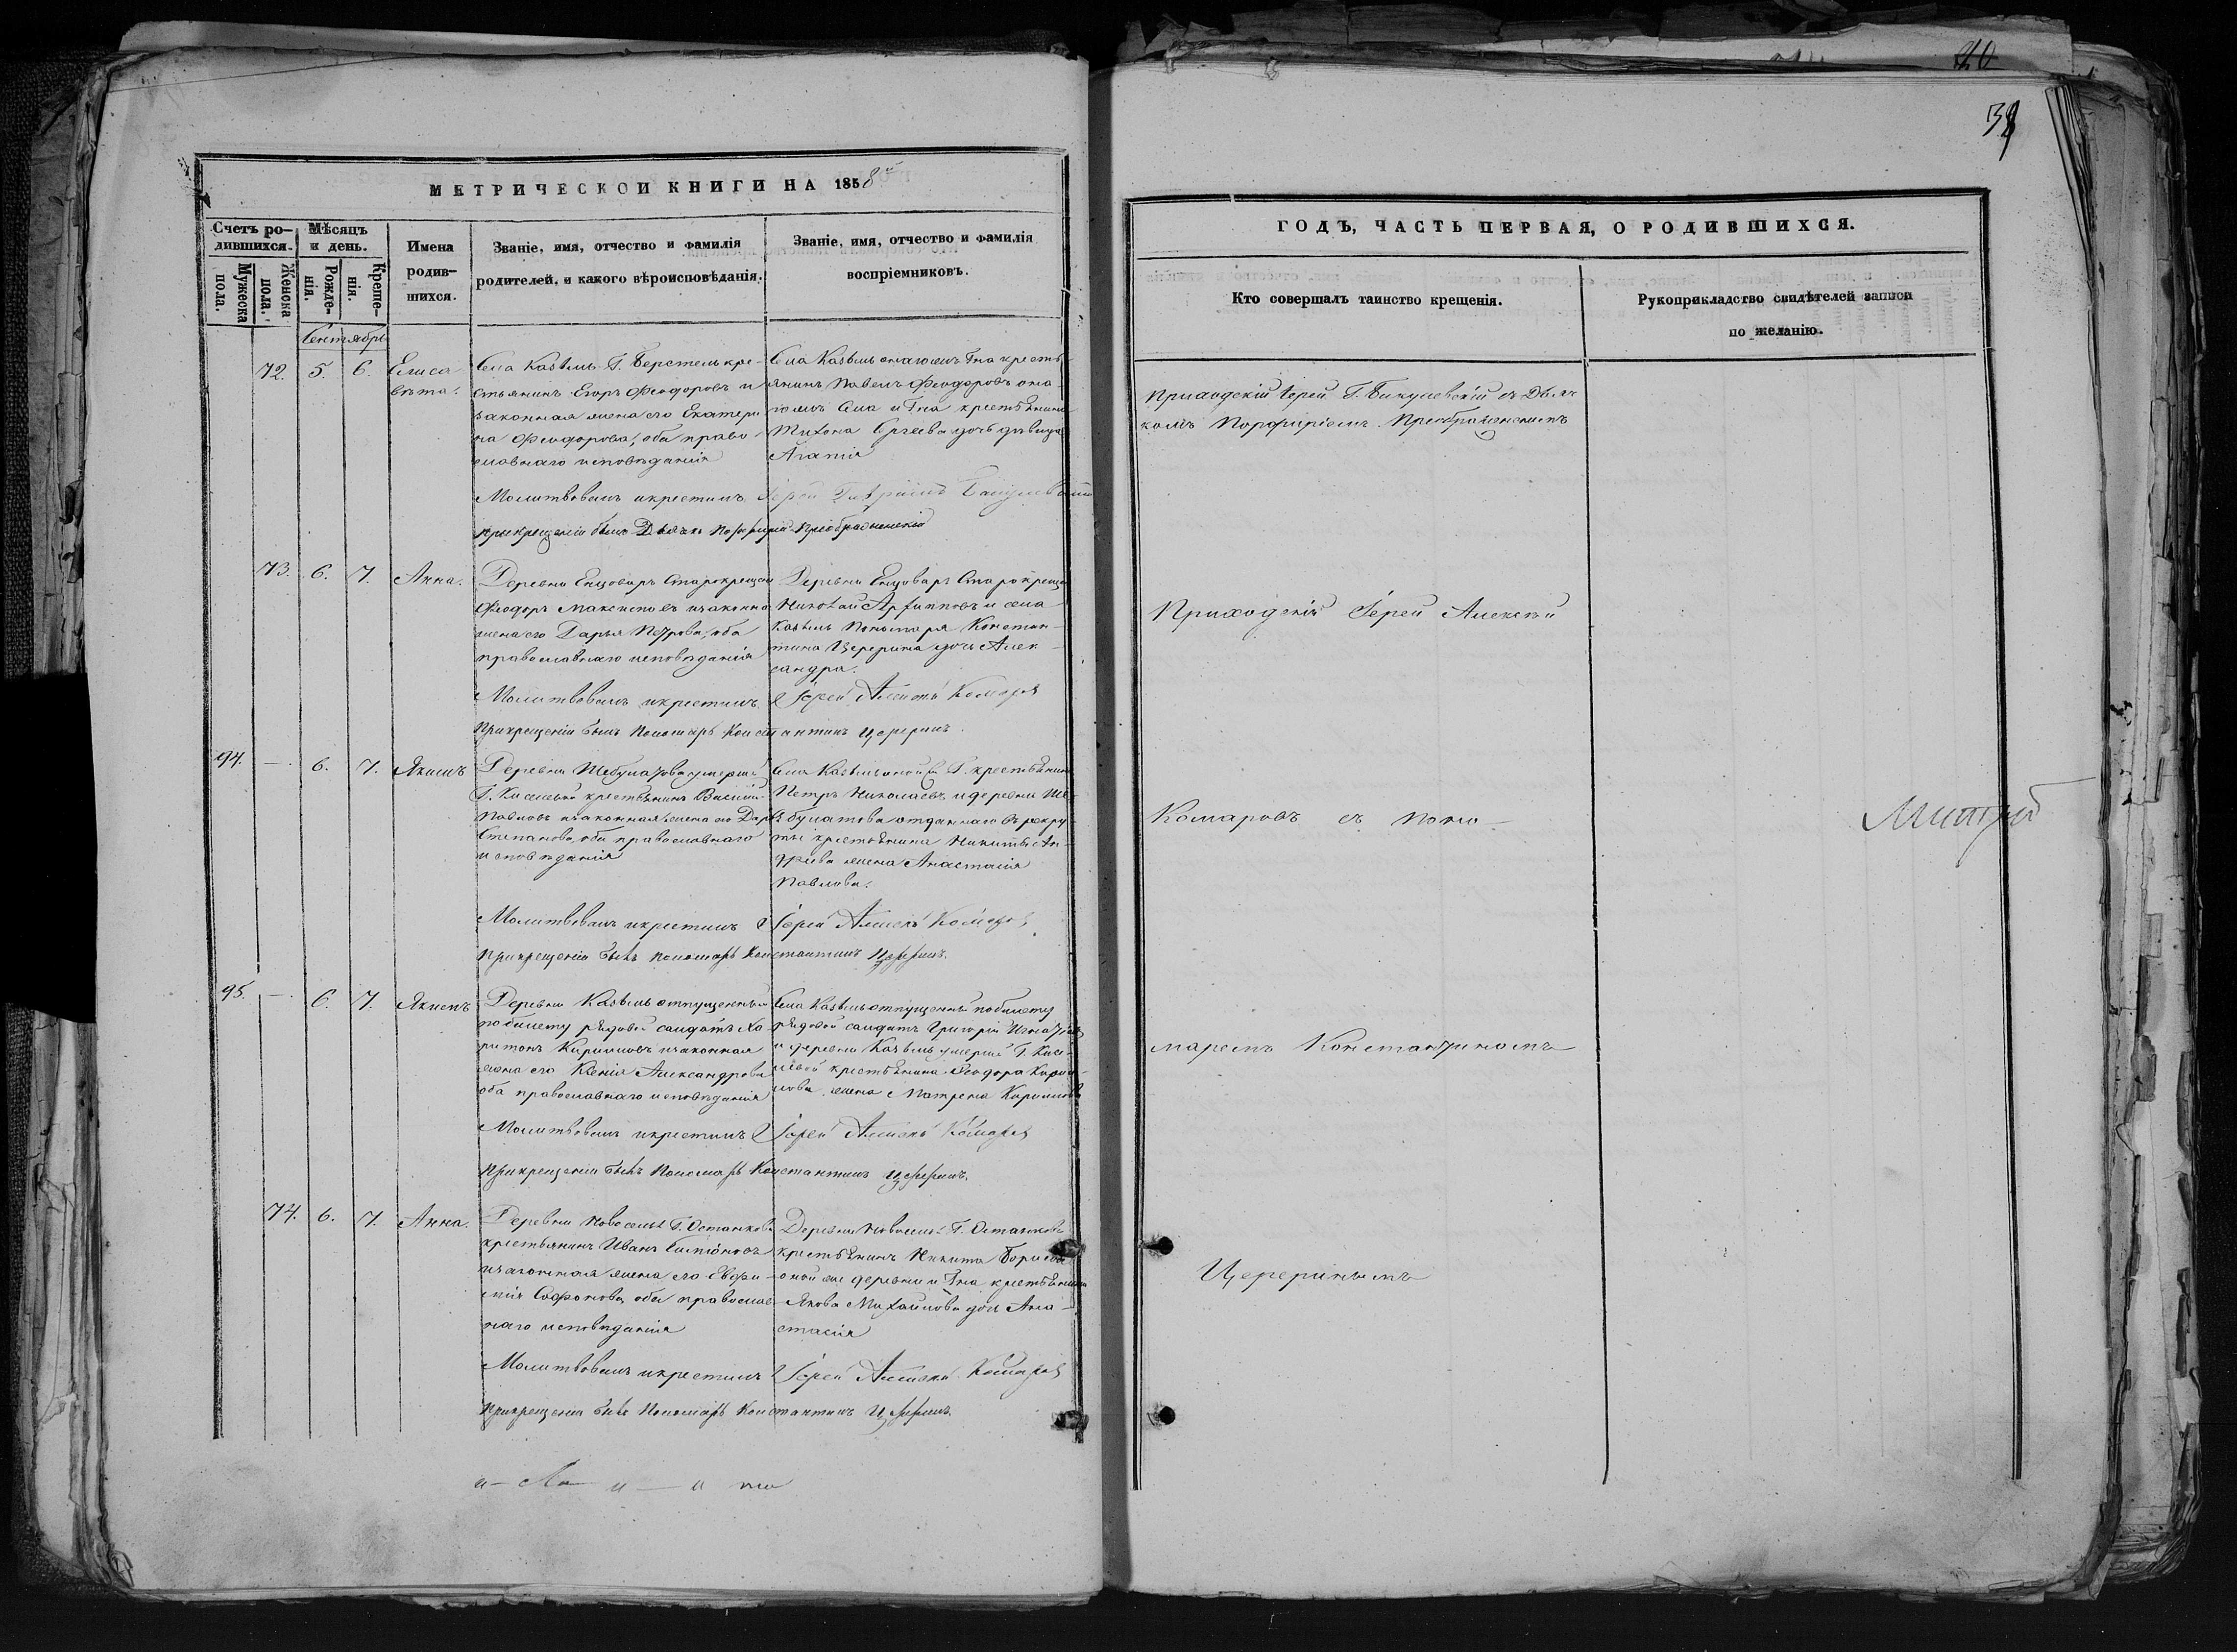 40
39
МЕТРИЧЕСКОЙ КНИГИ НА 1858й
Счетъ ро-
дившихся.
Мѣсяцъ
и день.
Мужеска
пола.
Женска
пола.
Рожде-
нія.
Креще-
нія.
Имена
родив-
шихся.
Званіе, имя, отчество и фамилія
родителей, и какого вѣроисповѣданія.
Званіе, имя, отчество и фамилія
воспріемниковъ.
Сентябрь
72. 5. 6.
Елиса-
вета.
Села Казыль Г. Берстель кре-
стьянинъ Егоръ Феодоровъ и
законная жена его Екатери
на Феодорова, оба право-
славнаго исповѣданія
Села Казыль онагожъ Гна кресть-
янинъ Павелъ Феодоровъ она-
гожъ Села и Гна крестьянина
Тихона Сергеева дочь дѣвица
Агапія
Молитвовалъ и крестилъ Іерей
при крещеніи былъ Дьячекъ Порфирій Преображенскій
73. 6. 7. Анна.
Деревни Старокрещен
Феодоръ Максимовъ и законна
жена его Дарья Петрова, оба
православнаго исповѣданія
Деревни Старокреще
Николай Архиповъ и села
Казыль Пономаря Констан-
тина Церерина дочь Алек-
сандра.
Молитвовалъ и крестилъ Іерей Алексѣй Комаровъ
При крещеніи былъ Пономарь Константинъ Цереринъ.
94. — 6. 7. Якимъ
Деревни Шебулатова умершей
Г. Киселевой крестьянинъ Василій
Павловъ и законная жена его Дарья
Степанова, оба православнаго
исповѣданія
Села Казыль Г. крестьянинъ
Петръ Николаевъ и деревни Ше-
булатова отданнаго въ рекру-
ты крестьянина Никиты Ан-
дреева жена Анастасія
Павлова.
Молитвовалъ и крестилъ Іерей Алексѣй Комаровъ
При крещеніи былъ Пономарь Константинъ Цереринъ.
95. — 6. 7. Якимъ
Деревни Казыль отпущенный
по билету рядовой салдатъ Ха-
ритонъ Кириловъ и законная
жена его Ксенія Александрова
оба православнаго исповѣданія
Села Казыль отпущенный по билету
рядовой салдатъ Григорій
и деревни Казыль умершей Г. Кисе-
левой крестьянина Феодора Кири-
лова жена Матрена Кирилова
Молитвовалъ и крестилъ Іерей Алексѣй Комаровъ
При крещеніи былъ Пономарь Константинъ Цереринъ.
74. 6. 7. Анна.
Деревни Новоселы Г. Останкова
крестьянинъ Иванъ
и законная жена его Евфи-
мія Софонова, оба православ-
наго исповѣданія
Деревни Новоселы Г. Останкова
крестьянинъ Никита Борисовъ
оной же деревни и Гна крестьянина
Якова Михайлова дочь Ана-
стасія
Молитвовалъ и крестилъ Іерей Алексѣй Комаровъ
При крещеніи былъ Пономарь Константинъ Цереринъ.
ГОДЪ, ЧАСТЬ ПЕРВАЯ, О РОДИВШИХСЯ.
Кто совершалъ таинство крещенія.
Рукоприкладство свидѣтелей записи
по желанію.
Приходскій Іерей Г. съ Дьяч-
комъ Порфиріемъ Преображенскимъ
Приходскій Іерей Алексѣй
Комаровъ съ Поно-
маремъ Константиномъ
Цереринымъ